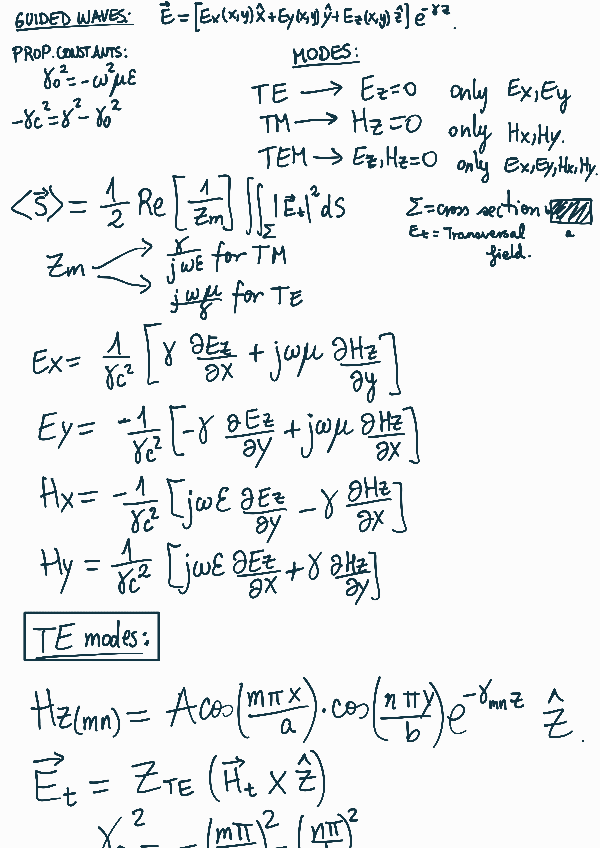 GUIDED WAVES: E⃗ = [Ex(x,y)x̂+Ey(x,y)ŷ+Ez(x,y)ẑ] e^-γz.
PROP. CONSTANTS:
γ0² = -ω²με
-γc² = γ² - γ0²
MODES:
TE → Ez=0 only Ex,Ey
TM → Hz=0 only Hx,Hy.
TEM → Ez,Hz=0 only Ex,Ey,Hx,Hy.
<S⃗> = 1/2 Re [1/Zm] ∬_Σ |E⃗t|² dS
Σ=cross section
a
Et = Transversal field.
Zm → γ/jωε for TM
→ jωμ/γ for TE
Ex = 1/γc² [γ ∂Ez/∂x + jωμ ∂Hz/∂y]
Ey = -1/γc² [-γ ∂Ez/∂y + jωμ ∂Hz/∂x]
Hx = -1/γc² [jωε ∂Ez/∂y - γ ∂Hz/∂x]
Hy = 1/γc² [jωε ∂Ez/∂x + γ ∂Hz/∂y]
TE modes:
Hz(mn) = A cos(mπx/a)·cos(nπy/b) e^-γmn z ẑ.
E⃗t = ZTE (H⃗t x ẑ)